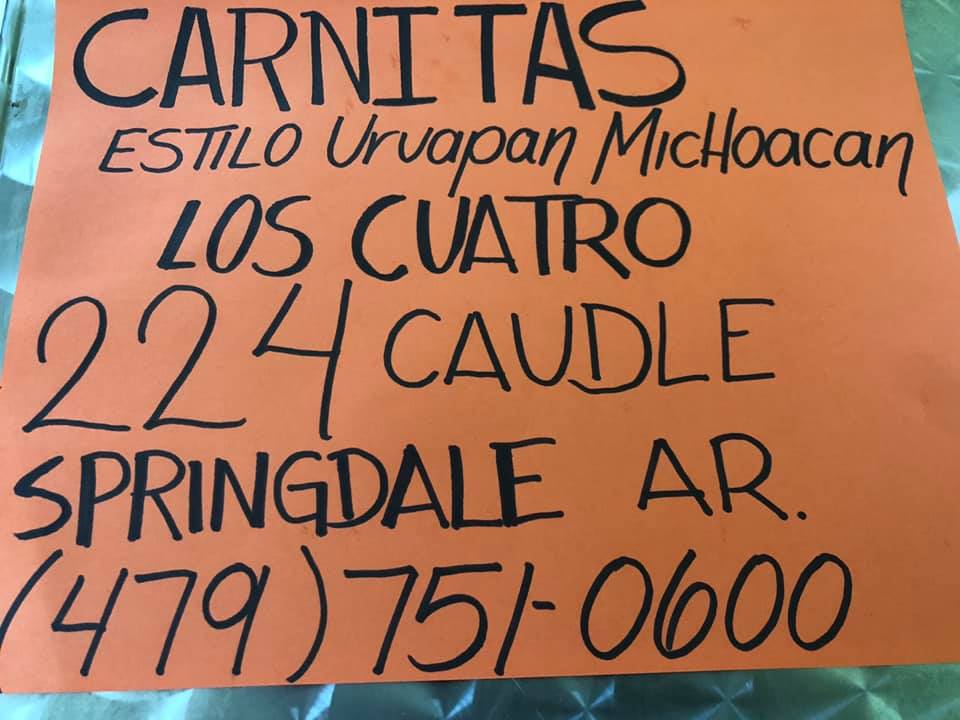 CARNITAS
ESTILO Uruapan MicHoacan
LOS CUATRO
224 CAUDLE
SPRINGDALE AR.
(479) 751-0600